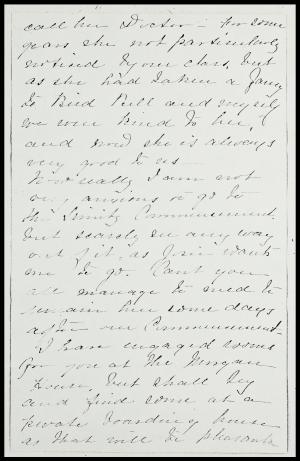 call her Doctor - for some
years she not particularly
behind your class, but
as she had taken a fancy
to Bird Bell and myself
we were kind to her,
and now she is always
very good to us -
Now really I am not
very anxious to go to
the Commencement,
but scarcely see any way
out of it, as Josie wants
me to go. Can't you
all manage to need to
remain here some days
after our Commencement -
I have engaged rooms
for you at the Morgan
House, but shall try
and find some at a
private boarding house
as that will be pleasanter